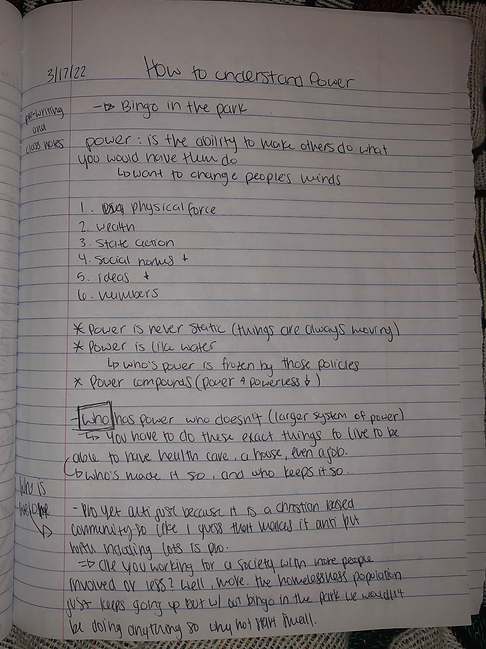 3/17/22 How to understand Power
pre-writing
and
class notes
→ Bingo in the park
power : is the ability to make others do what
you would have them do
↳ want to change people's minds
1. physical force
2. wealth
3. state action
4. social norms ↓
5. ideas ↓
6. numbers
* Power is never static (things are always moving)
* Power is like water
↳ who's power is frozen by those policies
* Power compounds (power ↑ powerless ↓)
- who has power who doesn't (larger system of power)
↳ You have to do these exact things to live to be
able to have health care, a house, even a job.
↳ who's made it so, and who keeps it so.
who is
- Pro yet anti just because it is a christian based
community so like I guess that makes it anti but
including lots is pro.
⇒ Are you working for a society with more people
involved or less? Well, more. the homelessness population
just keeps going up but w/ out bingo in the park we wouldn't
be doing anything so why not start small.